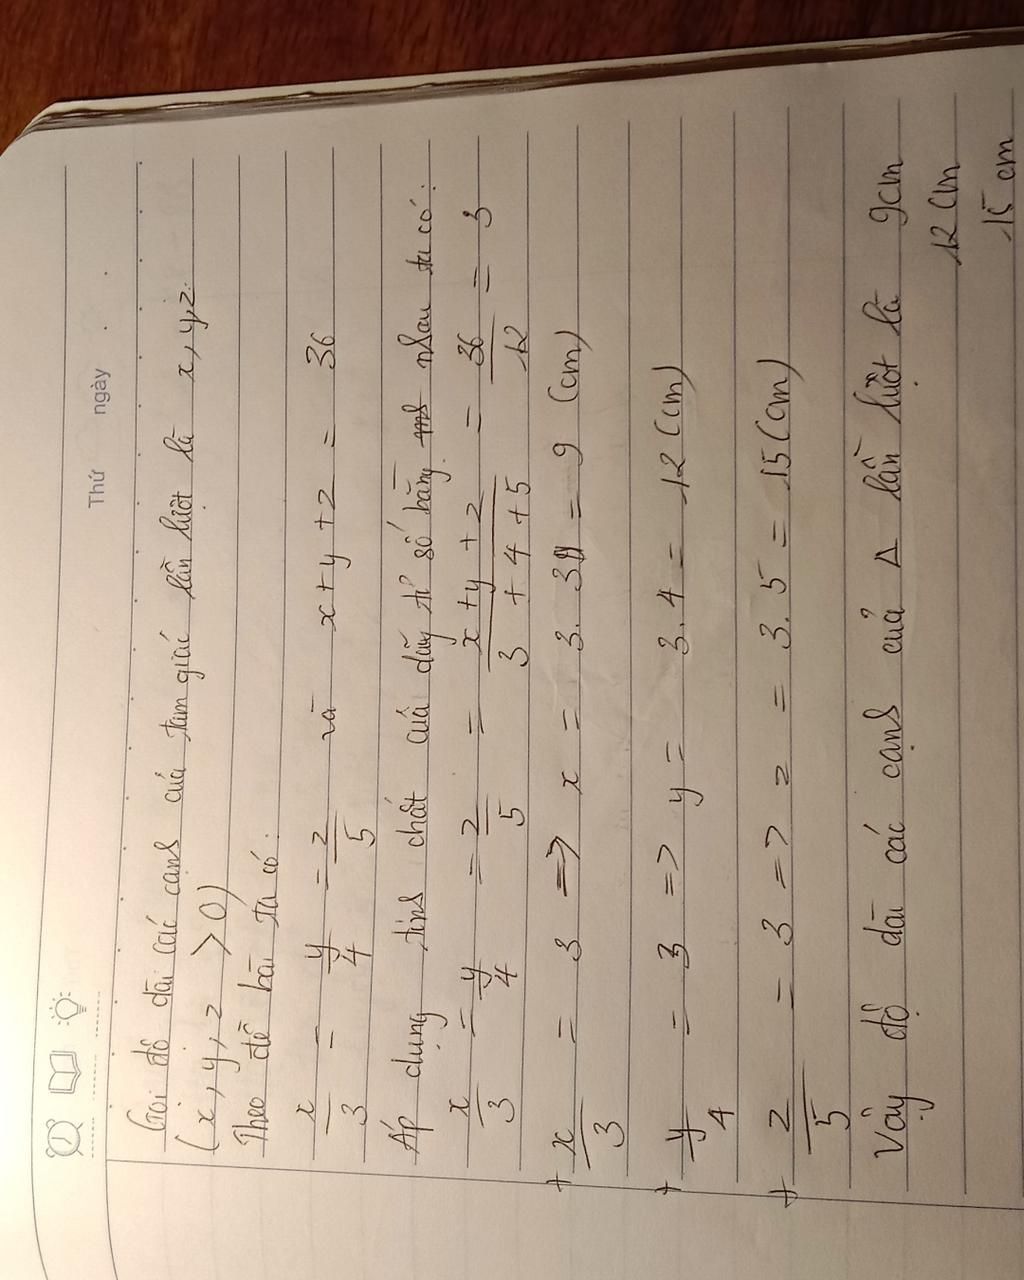 Thứ ngày
Gọi độ dài các cạnh của tam giác lần lượt là x, y, z.
(x, y, z > 0)
Theo đề bài ta có:
x/3 = y/4 = z/5 và x + y + z = 36
Áp dụng tính chất của dãy tỉ số bằng nhau ta có:
x/3 = y/4 = z/5 = x + y + z / 3 + 4 + 5 = 36/12 = 3
+ x/3 = 3 => x = 3.3 = 9 (cm)
+ y/4 = 3 => y = 3.4 = 12 (cm)
+ z/5 = 3 => z = 3.5 = 15 (cm)
Vậy độ dài các cạnh của Δ lần lượt là 9cm
12 cm
15 cm